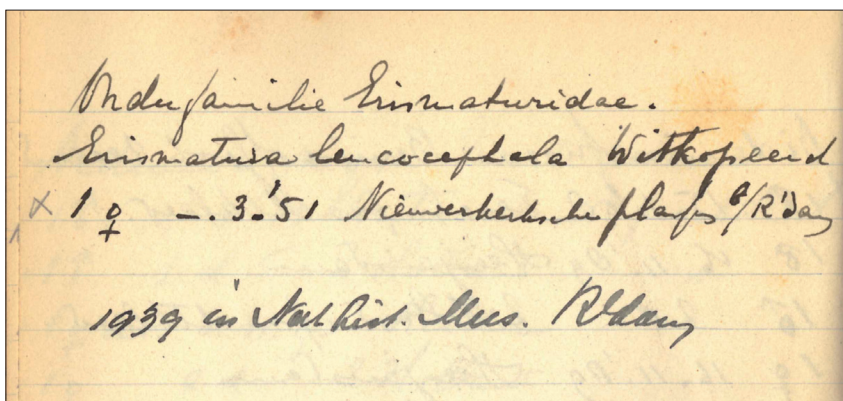 Onderfamilie Erismaturidae.
Erismatura leucocephala Witkopeend
× 1 ♀ —. 3.'51 Nieuwerkerksche plasjes b/R'dam
1939 in Nat. hist. Mus. R'dam